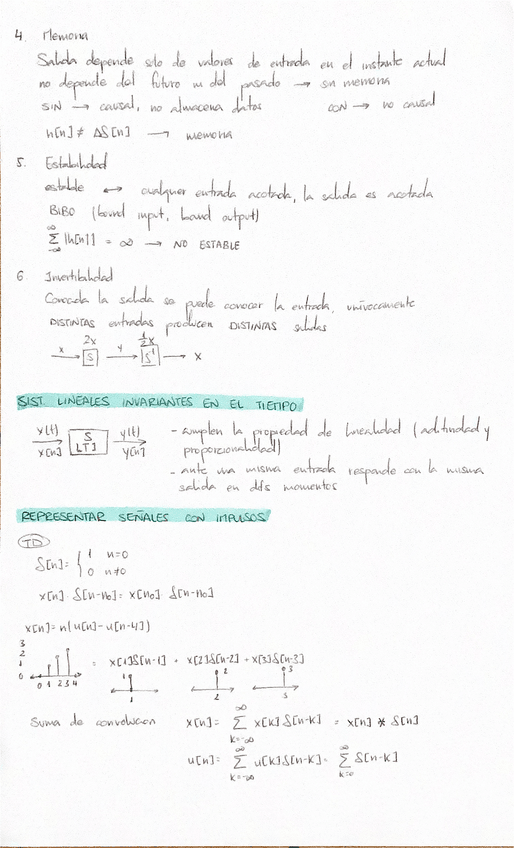 4. Memoria
Salida depende solo de valores de entrada en el instante actual
no depende del futuro ni del pasado → sin memoria
SIN → causal, no almacena datos CON → no causal
h[n] ≠ AS[n] → memoria
5. Estabilidad
estable ↔ cualquier entrada acotada, la salida es acotada
BIBO (bound input, bound output)
∞
Σ |h[n]| = ∞ → NO ESTABLE
-∞
6 Invertibilidad
Conocida la salida se puede conocer la entrada, unívocamente
DISTINTAS entradas producen DISTINTAS salidas
2x ½x
x → S y → S⁻¹ → x
SIST. LINEALES INVARIANTES EN EL TIEMPO
x(t) S y(t) - cumplen la propiedad de linealidad (aditividad y
x[n] LTI y[n] proporcionalidad)
- ante una misma entrada responde con la misma
salida en dfs momentos
REPRESENTAR SEÑALES CON IMPULSOS
TD
δ[n] = { 1 n=0
0 n≠0
x[n] · δ[n-n₀] = x[n₀] · δ[n-n₀]
x[n] = n(u[n] - u[n-4])
3
2
1
0
0 1 2 3 4
= x[1]δ[n-1] + x[2]δ[n-2] + x[3]δ[n-3]
1 2 3
1 2 3
Suma de convolucion x[n] = Σ x[k] δ[n-k] = x[n] * δ[n]
∞
k=-∞
u[n] = Σ u[k]δ[n-k] = Σ δ[n-k]
∞ ∞
k=-∞ k=0